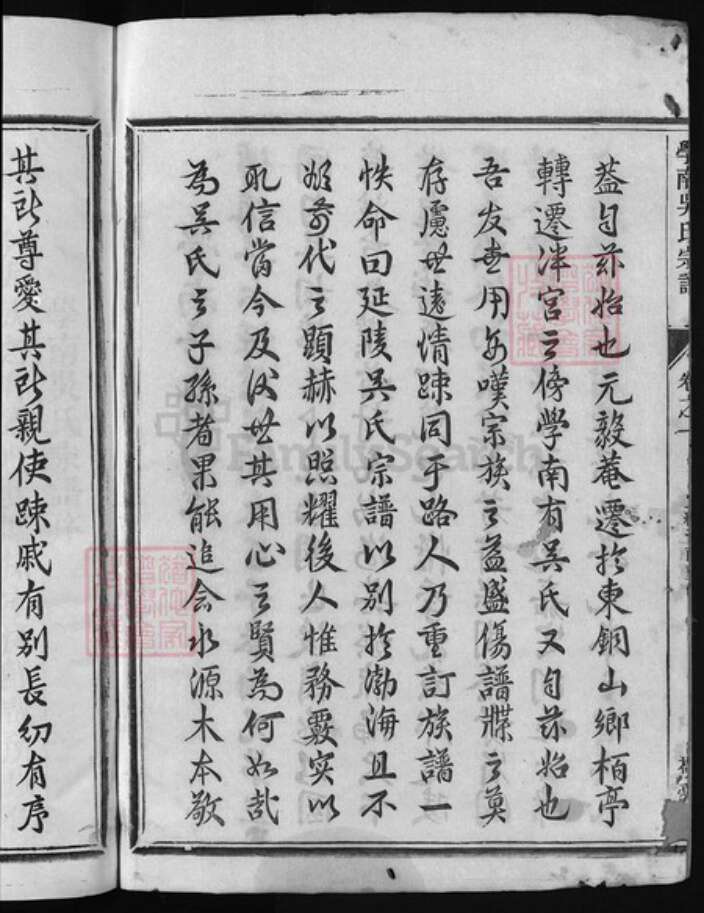 學南吳氏宗譜
卷之一
蓋自茲始也元毅菴遷於東銅山鄉栢亭
轉遷泮宮之傍學南有吳氏又自茲始也
吾友世用每嘆宗族之益盛傷譜牒之莫
存慮世遠情踈同于路人乃重訂族譜一
帙命曰延陵吳氏宗譜以別於渤海且不
顯赫以照耀後人惟務覈實以
取信當今及後世其用心之賢為何如哉
為吳氏之子孫者果能追念水源木本敬
其所尊愛其所親使踈戚有別長幼有序
FamilySearch